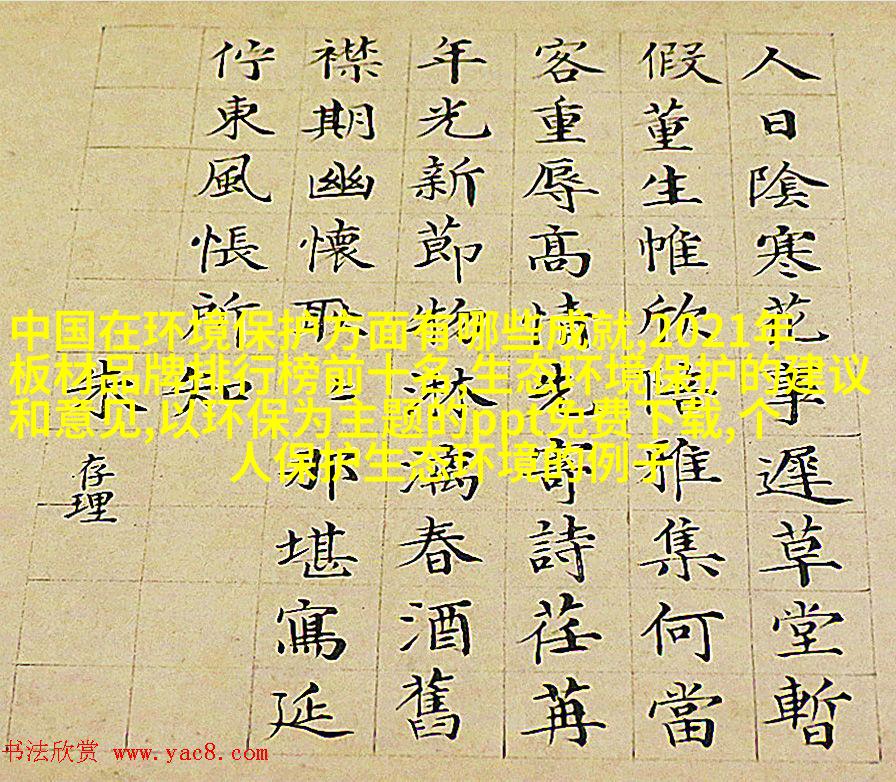 人日陰寒花事遲草堂暫
假董生帷欣陪雅集何當
客重辱高情先寄詩荏苒
年光新節物淋漓春酒舊
襟期幽懷聊那堪寫延
佇東風悵所知
朱
存理
中国在环境保护方面有哪些成就,2021年
板材品牌排行榜前十名,生态环境保护的建议
和意见,以环保为主题的ppt免费下载,个
人保护生态环境的例子
书法欣赏 www.yac8.com